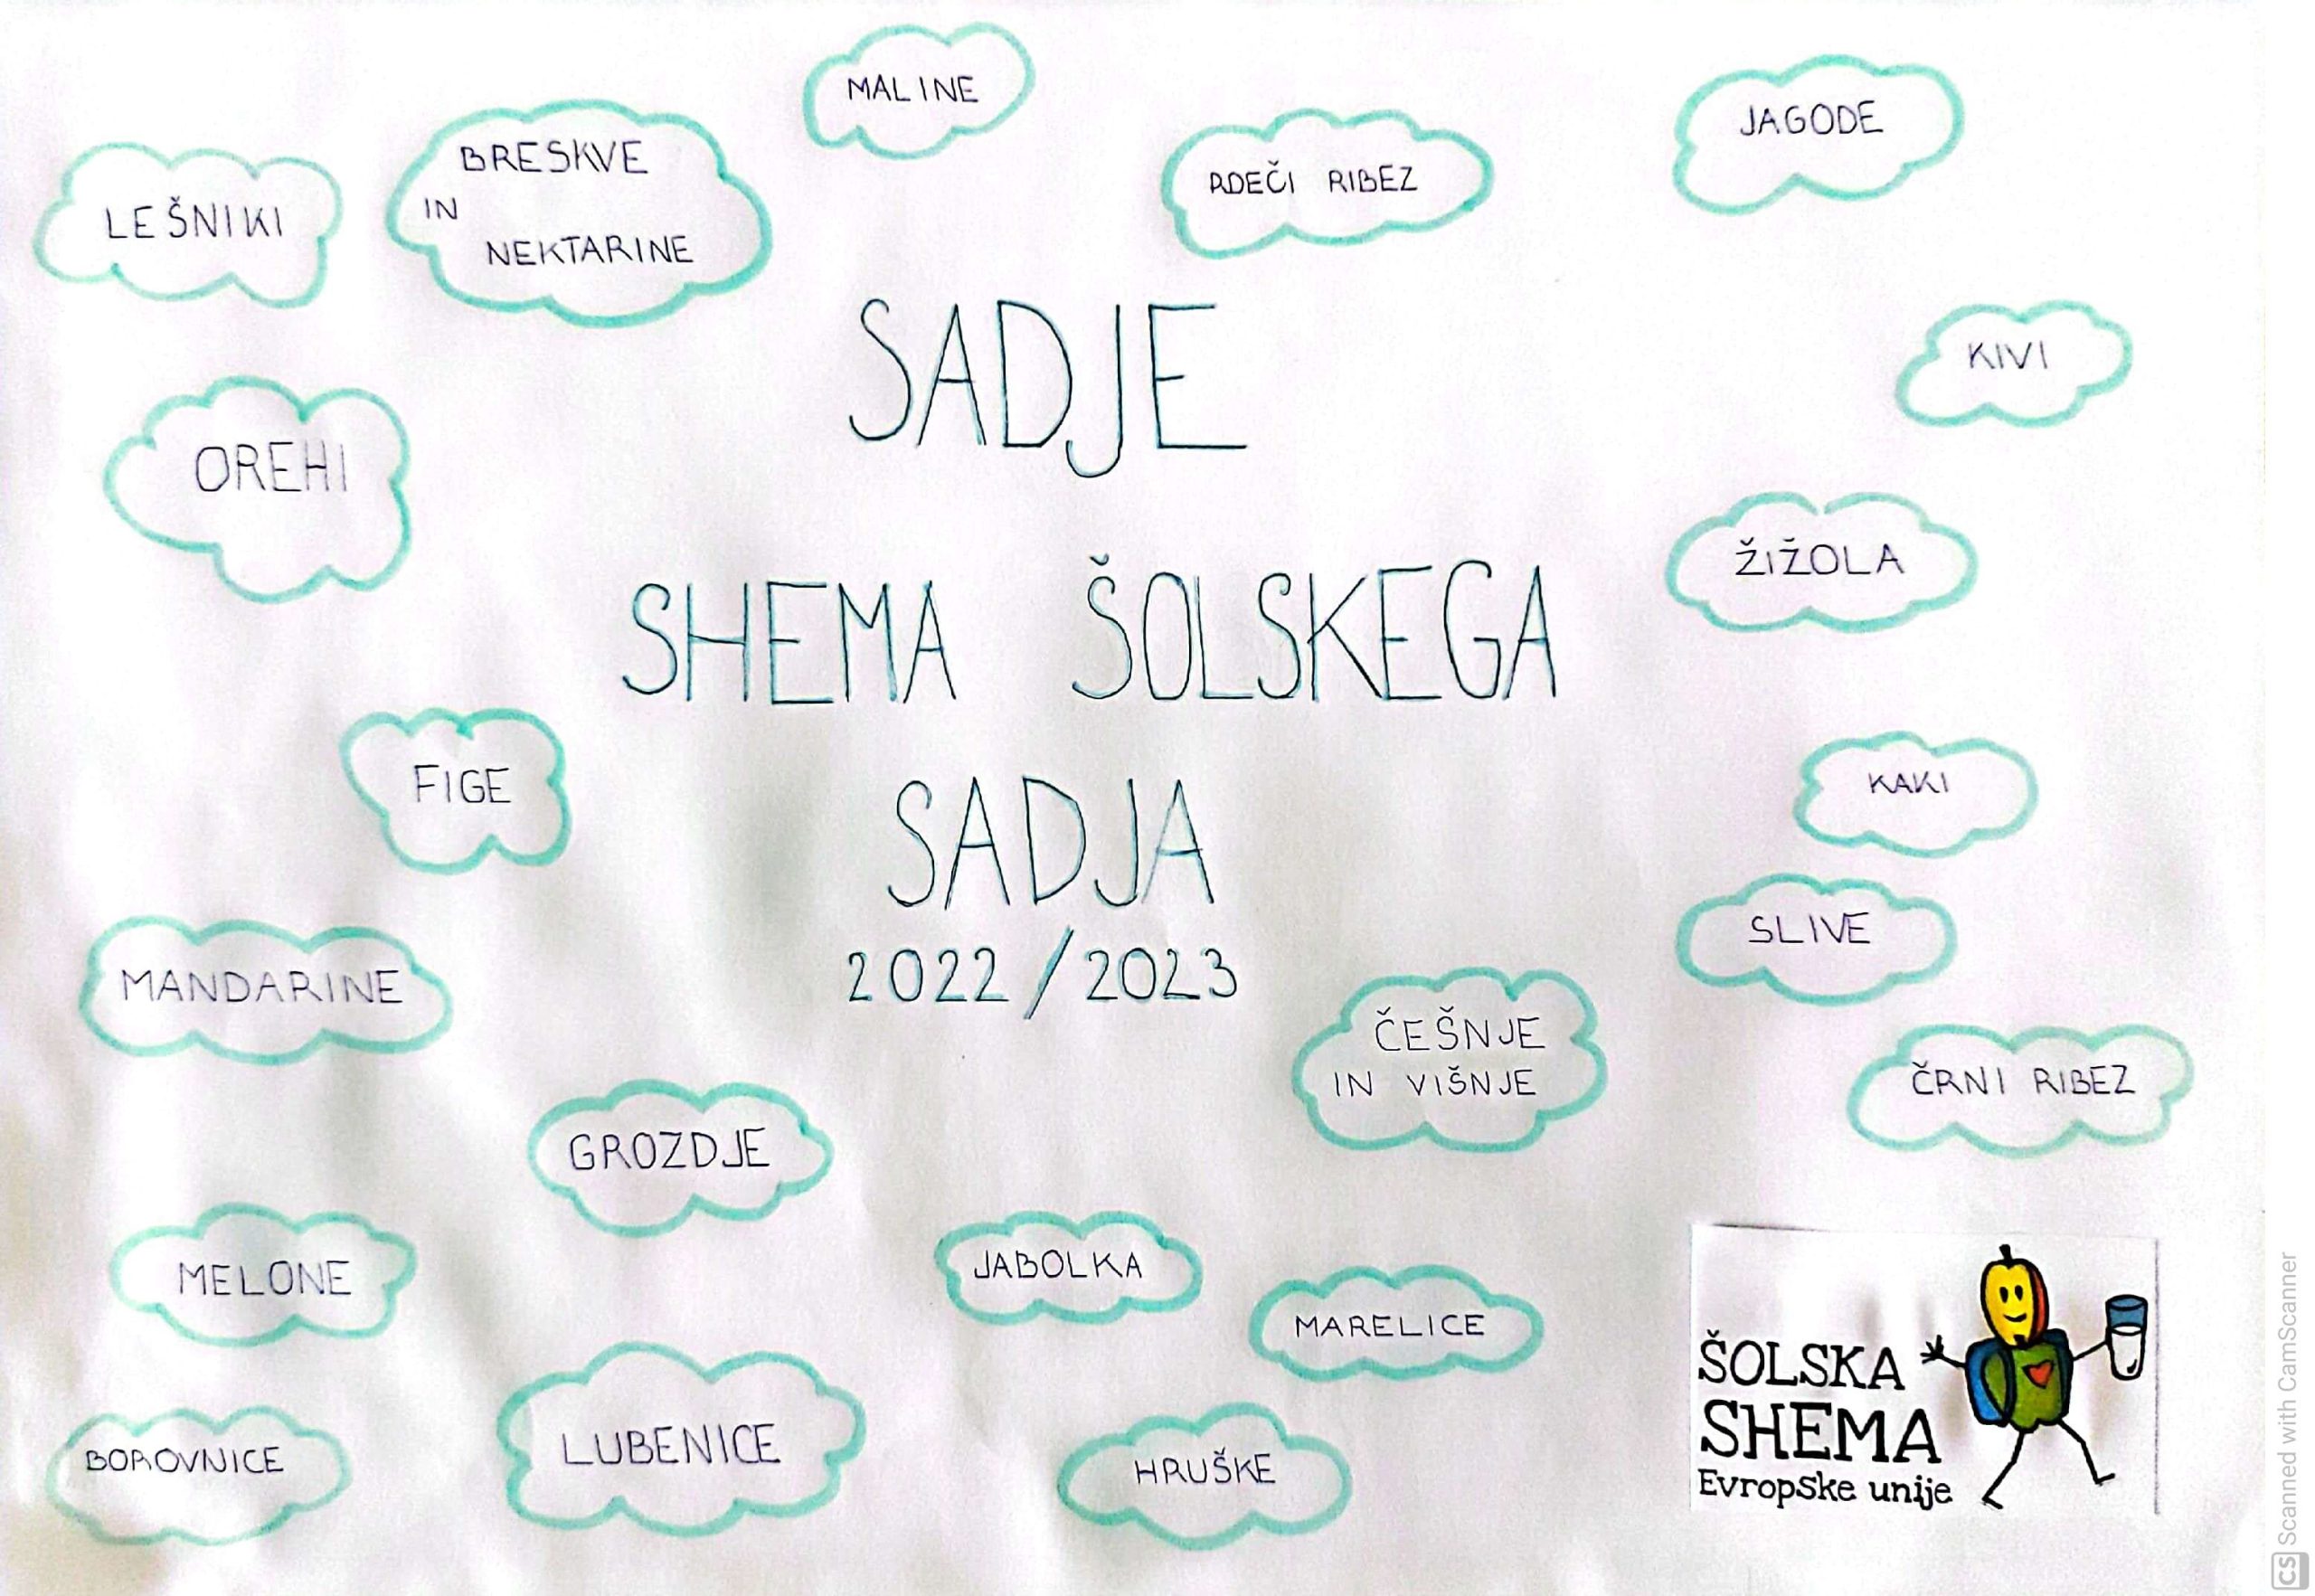 MALINE
JAGODE
BRESKVE
IN
NEKTARINE
RDEČI RIBEZ
LEŠNIKI
SADJE
KIVI
OREHI
ŽIŽOLA
SHEMA ŠOLSKEGA
FIGE
KAKI
SADJA
SLIVE
2022/2023
MANDARINE
ČEŠNJE
IN VIŠNJE
ČRNI RIBEZ
GROZDJE
JABOLKA
MELONE
MARELICE
LUBENICE
BOROVNICE
HRUŠKE
ŠOLSKA
SHEMA
Evropske unije
CS Scanned with CamScanner